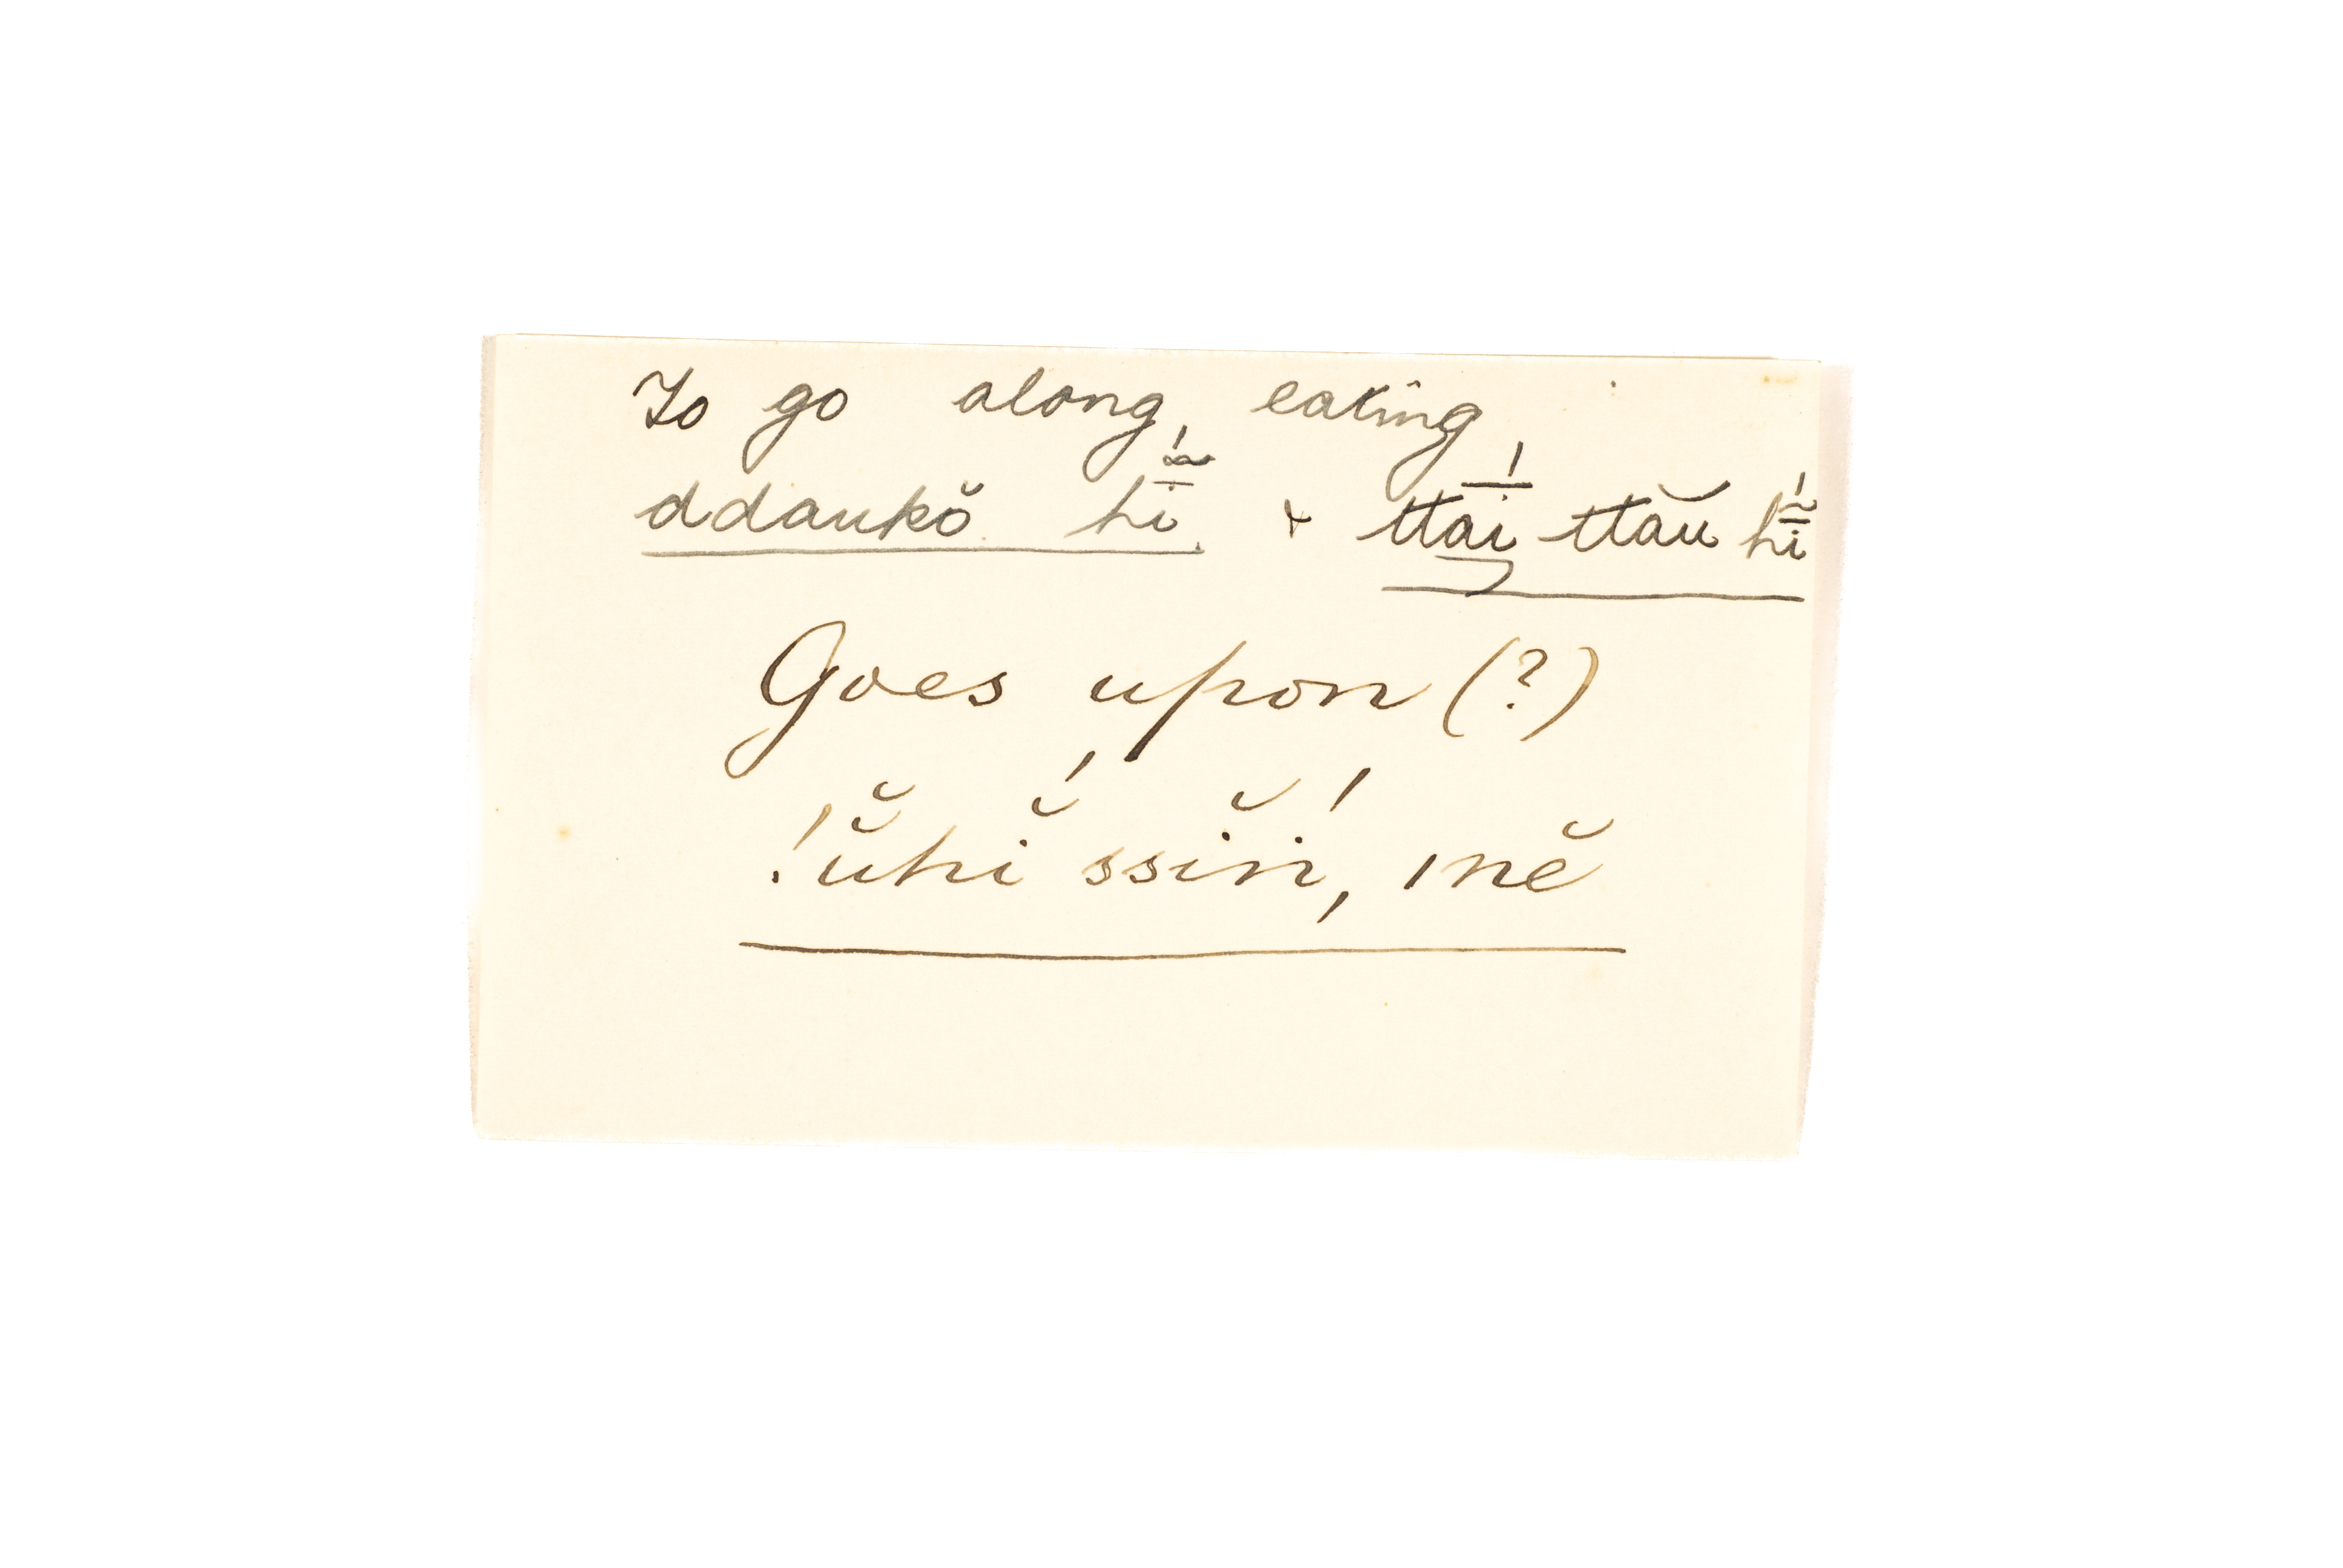 To go along eating
ddaukŏ hī̃́. + ttaī́ ttău hī̃́
Goes upon (?)
!ŭ̆hĭ́ ssĭṅ́, ınĕ̆